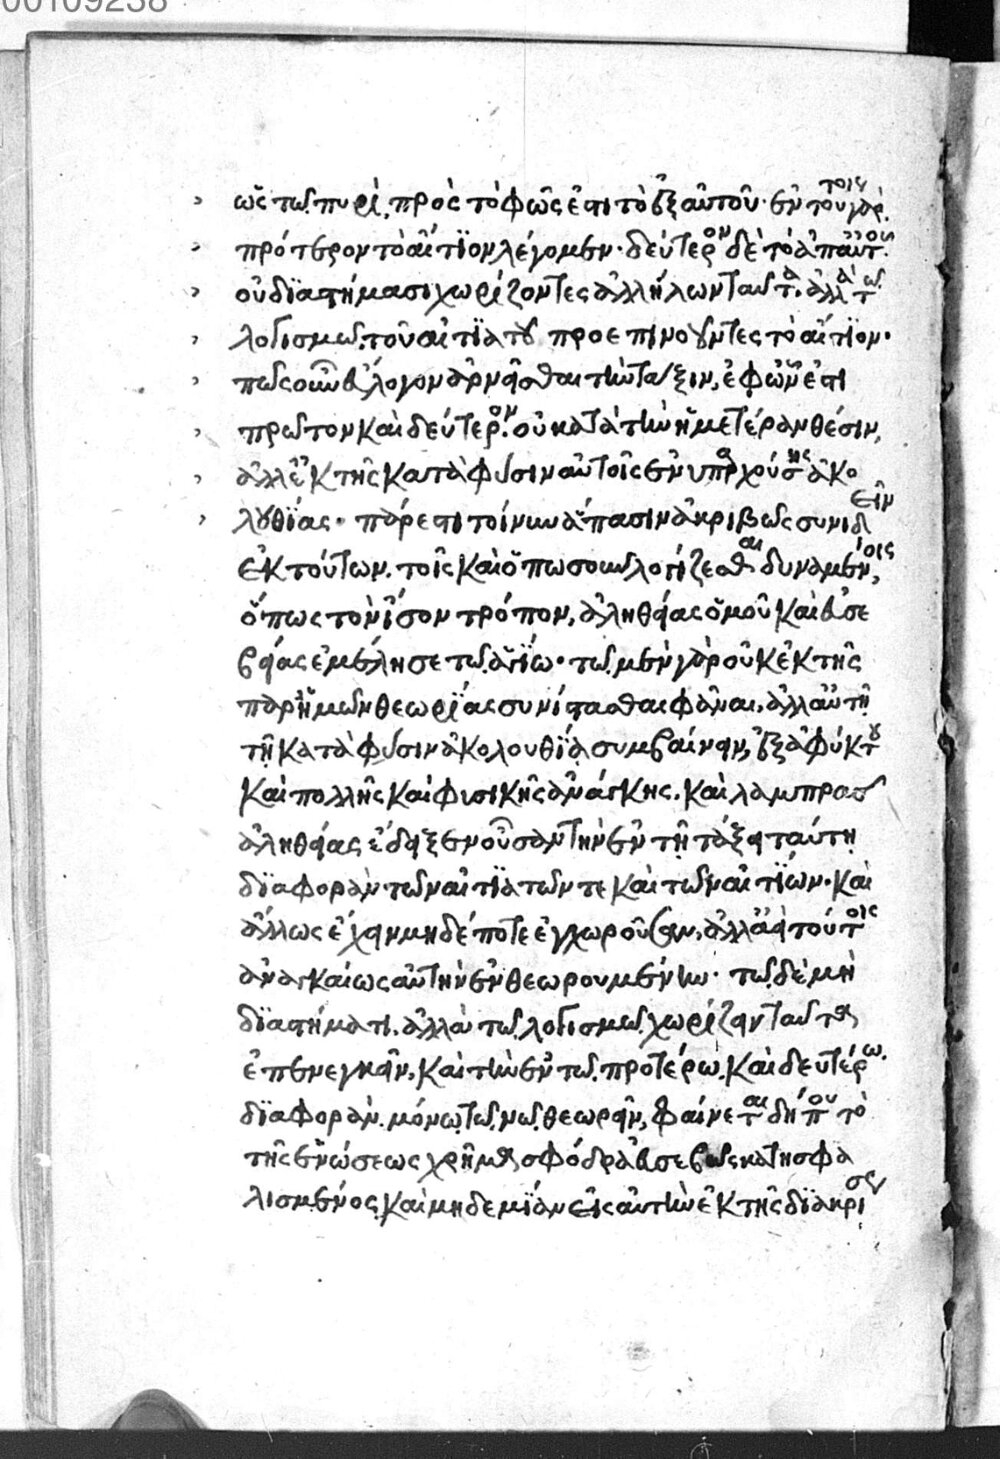 00109238
ὡς τῶ πυρὶ, πρὸς τὸ φῶς ἐστι τὸ ἐξ αὐτοῦ· ἐν τούτοις γὰρ
πρότερον τὸ αἴτϊον λέγομεν· δεύτερον δὲ τὸ ἀπ' αὐτοῦ·
οὐ δϊαστήμασι χωρίζοντες ἀλλήλων ταῦτα, ἀλλὰ τῶ
λογισμῶ τοῦ αἰτϊατοῦ προεπινοοῦντες τὸ αἴτϊον·
πῶς οὖν εὔλογον ἀρνῆσθαι τὴν τάξιν, ἐφ' ὧν ἐστι
πρῶτον καὶ δεύτερον οὐ κατὰ τὴν ἡμετέραν θέσιν,
ἀλλ' ἐκ τῆς κατὰ φύσιν αὐτοῖς ἐνυπαρχούσης ἀκο
λουθΐας· πάρεστι τοίνυν ἅπασιν ἀκριβῶς συνιδεῖν
ἐκ τούτων, τοῖς καὶ ὁπωσοῦν λογίζεσθαι δυναμένοις,
ὅπως τὸν ἴσον τρόπον, ἀληθείας ὁμοῦ καὶ εὐσε
βείας ἐμέλησε τῶ ἁγίω· τῶ μὲν γὰρ οὐκ ἐκ τῆς
παρ' ἡμῶν θεωρΐας συνίστασθαι φάναι, ἀλλ' αὐτῆ
τῆ κατὰ φύσιν ἀκολουθΐα συμβαίνειν, ἐξ ἀφύκτου
καὶ πολλῆς καὶ φισικῆς ἀνάγκης, καὶ λαμπρᾶς
ἀληθείας ἔδειξεν οὖσαν τὴν ἐν τῆ τάξει ταύτη
δϊαφορὰν τῶν αἰτϊατῶν τε καὶ τῶν αἰτΐων· καὶ
ἄλλως ἔχειν μηδέποτε ἐγχωροῦσαν, ἀλλ' ἀεὶ τούτοις
ἀναγκαίως αὐτὴν ἐνθεωρουμένην· τῶ δὲ μὴ
δϊαστήματι, ἀλλὰ τῶ λογισμῶ χωρίζειν ταῦτα
ἐπενεγκεῖν, καὶ τὴν ἐν τῶ προτέρω καὶ δευτέρω
δϊαφορὰν μόνω τῶ νῶ θεωρεῖν, φαίνεται δήπου τὸ
τῆς ἑνώσεως χρῆμα σφόδρα εὐσεβῶς κατησφα
λισμένος, καὶ μηδεμίαν εἰς αὐτὴν ἐκ τῆς δϊακρίσεως